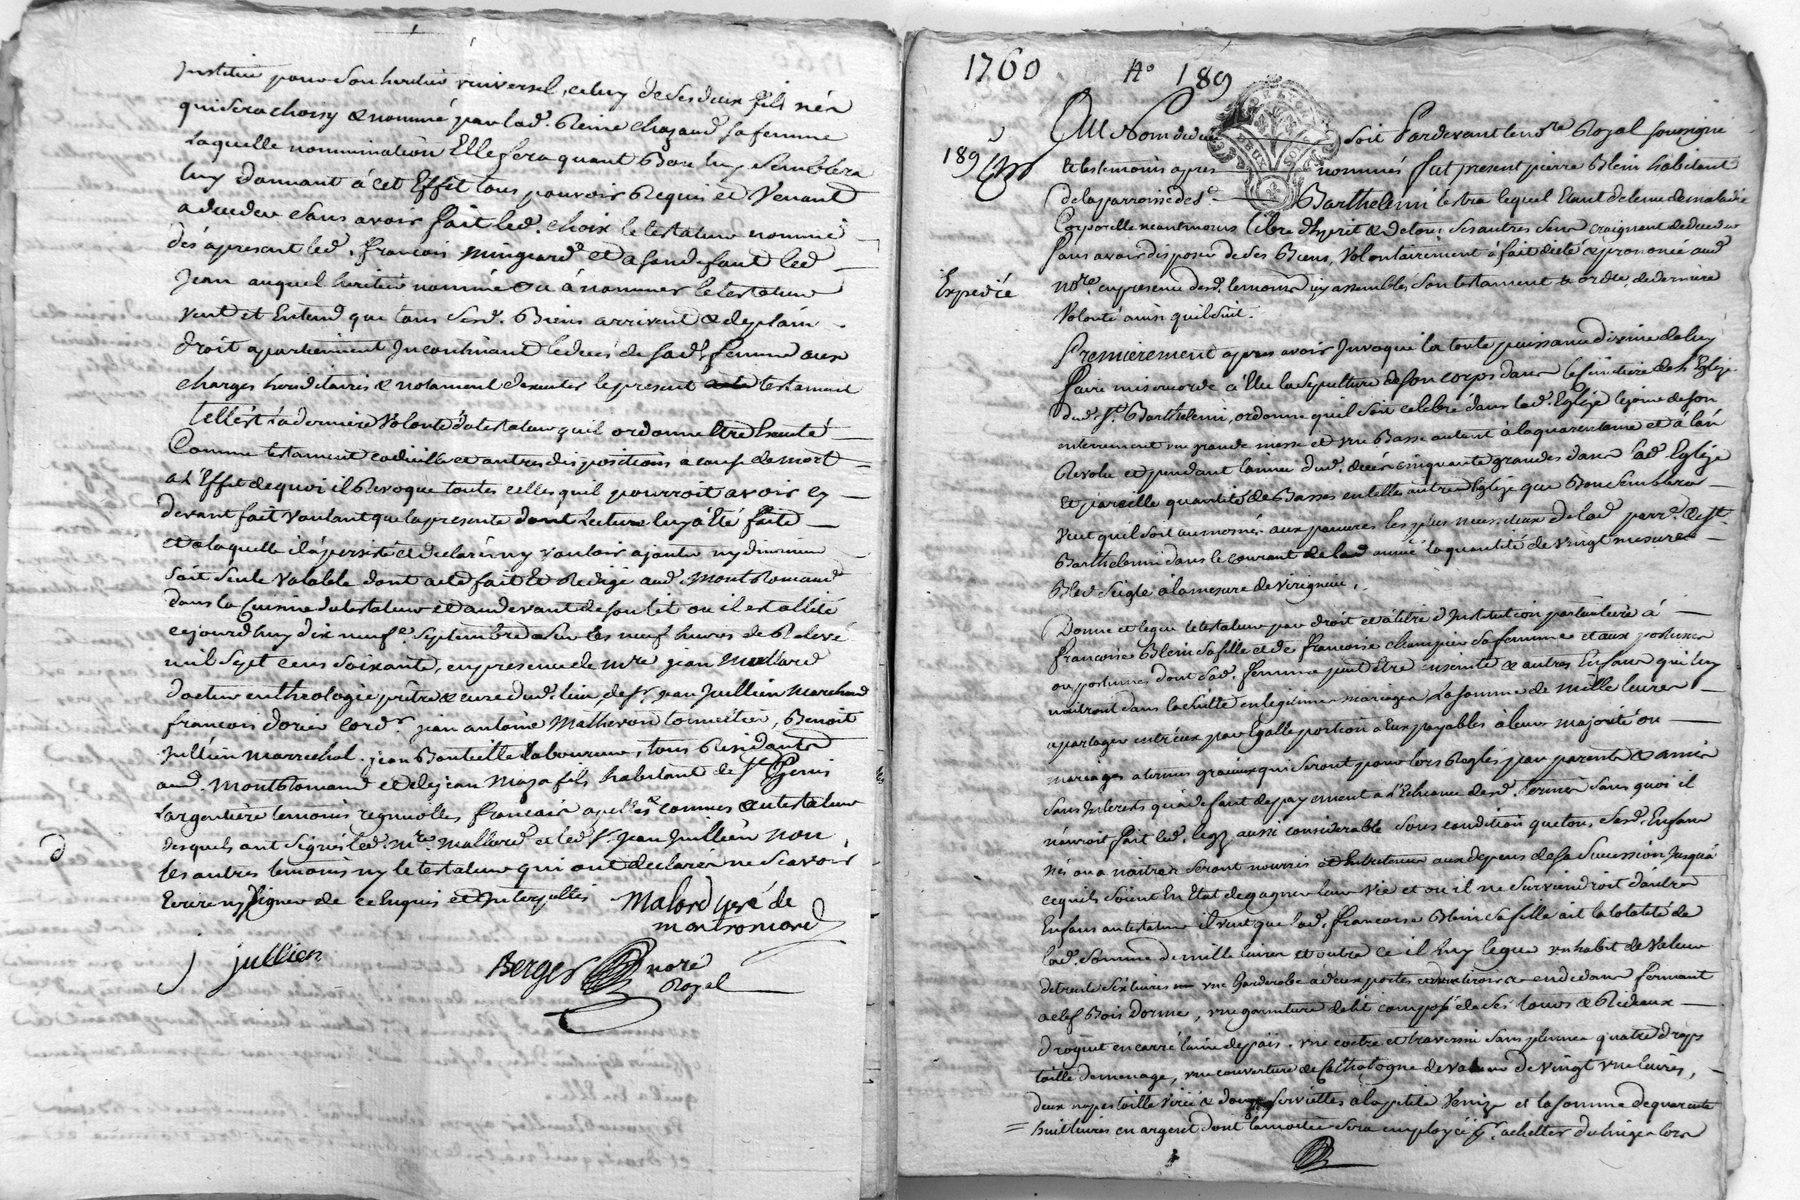 Institue pour son heritier universel, celuy de ses deux fils nés
qui sera choisy & nommé par lad. Reine chazaud sa femme
Laquelle nommination Elle fera quant Bon luy semblera
luy donnant à cet Effet tous pouvoirs Requis et Venant
a deceder sans avoir fait led. choix le testateur nomme
dés apresent led. francois minguard et a son deffaut led
Jean auquel heritier nommé ou à nommer le testateur
veut et Entend que tous sesd. Biens arrivent & de plain
droit apartiennent Incontinant le deces de sad. femme aux
charges hereditaires & notament dexecuter le present testament
telle est sa derniere Volonté du testateur quil ordonne Etre Executé
Comme testament codicille et autres dispositions a cause de mort
a L'Effet de quoi il Revoque toutes celles quil pourroit avoir cy
devant fait voulant que la presente dont Lecture luy a Eté faite
et a laquelle il a persisté et declaré ny vouloir ajouter ny diminuer
soit seule valable dont acte fait Et Redigé aud. Montromand
dans la Cuisine du testateur et au devant de son lit ou il est allité
cejourd'huy dix neufe. Septembre sur les neuf heures de Relevé
mil Sept cens soixante, en presence de mre jean Mallard
docteur en theologie prêtre & curé dud. lieu, de sr. jean Jullien Marchand
francois dorier cordr. jean antoine Matheron tonnelier, Benoit
Jullien marrechal, jean Bouteille laboureur, tous Residants
aud. Montromand et de jean Maza fils habitant de St. Genis
Largentière temoins regnicolles francais apellés connus & au testateur
desquels ont signés led. mre mallard et led. sr. jean Juillien non
les autres temoins ny le testateur qui ont declarer ne scavoir
Ecrire ny signer de ce Enquis et Interpellés
Malard curé de
montromand
j jullien
Berger nore
Royal
1760 No 189
Au Nom de dieu soit Pardevant le nore Royal soussigné
189
& les temoins apres nommés fut present pierre Blein habitant
de la parroisse de St. Barthelemi lestra lequel Etant detenu de maladie
Corporelle neantmoins libre d'Esprit & de tous ses autres sens craignant de deceder
sans avoir disposer de ses Biens, Volontairement à fait dicté & prononcé aud
Expedié
nore. en presence desd. temoins icy assemblés son testament & ordce. de derniere
Volonté ainsi quil suit.
Premièrement apres avoir Invoqué la toute puissance divine de luy
faire misericorde a Elu la sepulture de son corps dans le simitiere de l'Eglize
dud. St. Barthelemi, ordonne quil soit celebre dans lad. Eglize le jour de son
enterrement une grande messe et une Basse autant à la quarantaine et à l'an
Revolu et pendant l'année dud. decés cinquante grandes dans lad. Eglize
Et pareille quantité de Basses en telles autres Eglize que Bon semblera
Veut quil soit aumosné aux pauvres les plus necessiteux de lad. parre. de St.
Barthelemi dans le courant de lad année la quantité de vingt mesures
Bled Seigle à la mesure de Virigneu.
Donne et legue le testateur par droit et a titre d'Institution particuliere à
francoise Blein sa fille et de francoise champier sa femme et aux postumes
ou postumes dont sad. femme peut Etre enceinte & autres Enfans qui luy
naitront dans la suitte en legitimes mariages La somme de mille livres
a partager entr'eux par Egalle portion a Eux payables à leur majorité ou
mariages a termes gracieux qui seront pour lors Reglés par parents & amis
sans Interests qu'a defaut de payement a l'Echeance desd. termes sans quoi il
n'auroit fait led. legs aussi considerable sous condition que tous sesd. Enfans
nés ou a naitre seront nourris et Entretenus aux depens de sa succession Jusqu'à
ce quils soient En Etat de gagner leur vie et ou il ne surviendroit d'autres
Enfans au testateur il veut que lad. francoise Blein sa fille ait la totalité de
lad. somme de mille livres et outre ce il luy legue un habit de valeur
de trente six livres une Garderobe a deux portes & deux tiroirs en dedans fermant
a clef Bois dorme, une garniture de lit composé de ses tours & Rideaux
droguet en carré laine de païs, une coetre et traversin sans plumes quatre draps
toille de menage, une couverture de Cathalogne de valeur de vingt une livres,
deux napes toille virée & douze serviettes a la petite Venize et la somme de quarante
= huit livres en argent dont la moitié sera employé a achetter du linge lors